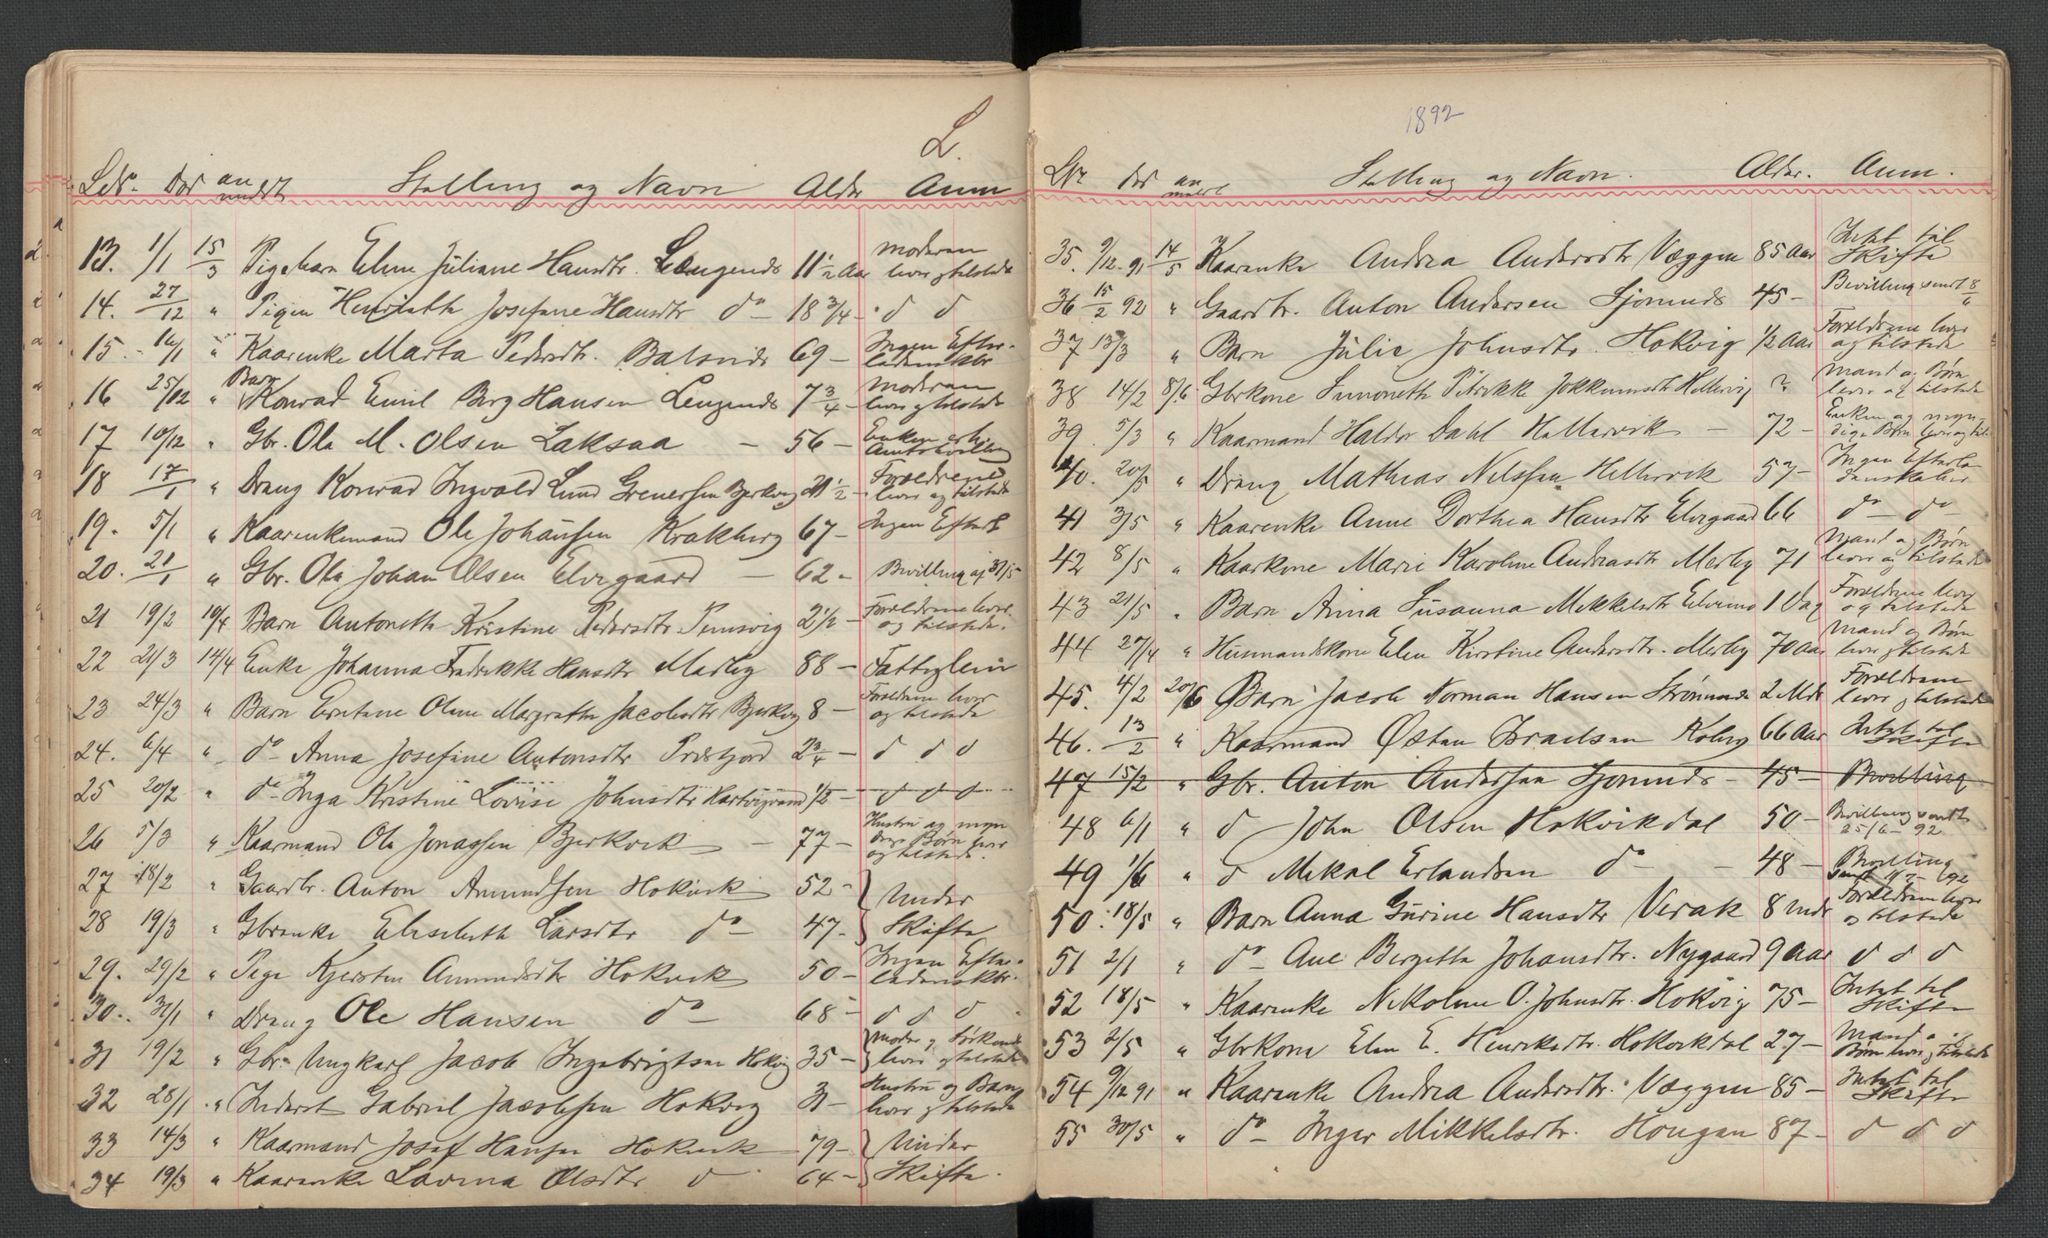 L.
LNo. Død an meldt Stilling og Navn Alder Anm
13. 1/1 15/3 Pigebarn Elen Juliane Hansdtr. Lengenes 11 1/2 Aar Moderen lever & tilstede
14. 27/12 " Pigen Henriette Josefine Hansdtr do 18 3/4 - d d
15. 16/1 " Kaarenke Marta Pedersdtr. Balsnes 69 - Ingen Efterladenskbr
16 25/12 " Barn Konrad Emil Berg Hansen Lengenes 7 3/4 - Moderen lever & tilstede
17 10/12 " Gbr. Ole M. Olsen Laksaa - 56 - Enken erh. Amtsbevilling
18 17/1 " Dreng Konrad Ingvald Lund Greuersen Bjerkvig 21 1/2 - Forældrene lever og tilstede
19. 5/1 " Kaarenkemand Ole Johansen Krakberg 67 - Ingen Efterl
20. 21/1 " Gbr. Ole Johan Olsen Elvegaard - 62 - Bevilling af 31/5
21 19/2 10/4 Barn Antoneth Kristine Pedersdtr Sum­svig 2 1/2 - Forældrene lever og tilstede.
22 21/3 14/4 Enke Johanna Fredrikke Hansdtr Medby 88 - Fattiglem
23 24/3 " Barn Erntine Oline Margrethe Jacobsdtr Bjerkvig 8 - Forældrene lever og tilstede
24. 6/4 " do Anna Josefine Antonsdtr Præstjord 2 3/4 - d d d
25 20/2 " do Inga Kristine Lovise Johnsdtr Hartvigvand 1/2 - d d d
26 5/3 " Kaarmand Ole Jonassen Bjerkvik - 77 - Hustru og myndige Børn lever og tilstede.
27 18/2 " Gaardbr. Anton Amundsen Hokvik 52 - } Under
28 19/3 " Gbrenke Elisebeth Larsdtr do 47 - } Skifte
29. 29/2 " Pige Kjersten Amundsdtr Hokvik 50 - Ingen Efterladenskbr.
30. 31/1 " Dreng Ole Hansen do 68 - d d d
31 19/2 " Gbr Ungkarl Jacob Ingebrigtsen Hokvig 35 - Moder & Søskende lever & tilstede
32 28/1 " Inderst Gabriel Jacobsen Hokvig 31 - Hustru og Barn lever & tilstede
33 14/3 " Kaarmand Josef Hansen Hokvik 79 - } Under
34 19/3 " Kaarenke Lavina Olsdtr d 64 - } Skifte.
1892
LNr død an meldt Stilling og Navn. Alder. Anm.
35. 9/12 91 14/5 Kaarenke Andrea Andersdtr Væggen 85 Aar Intet til Skifte
36 15/2 92 " Gaardbr. Anton Andersen Sjomnes 45 - Bevilling sendt 8/6
37 13/3 " Barn Julie Johnsdtr. Hokvig 1/2 Aar Forældrene lever og tilstede
38 14/2 8/6 Gbrkone Simoneth Petrikke Jokkumsdtr Hellervig ? Mand og Børn lever og tilstede
39. 5/3 " Kaarmand Halder Dahl Hellervik - 72 - Enken og myndige Børn lever og tilst
40. 20/5 " Dreng Mathias Nilssen Hellervik 57 - Ingen Efterladenskaber
41 3/5 " Kaarenke Anne Dorthea Hansdtr Elvegaard 66 do do
42 8/5 " Kaarkone Marie Karoline Andreasdtr Merby 71 Mand og Børn lever og tilstede
43 21/5 " Barn Anna Susanna Mikkelsdtr Elvenes 1 Dag Forældrene lever og tilstede
44 27/4 " Husmandskone Elen Kirstine Andersdtr. Merby 70 Aar Mand og Børn lever & tilstede
45. 4/2 20/6 Barn Jacob Norman Hansen Strømnes 2 Mdr Forældrene lever & tilstede
46. 13/2 " Kaarmand Østen Israelsen Koberg 66 Aar Intet til Skifte
47 15/2 " Gbr. Anton Andersen Sjomnes - 45 - Bevilling
48 6/1 " d John Olsen Hokvikdal 50 - Bevilling sendt 25/6 - 92
49 1/6 " d Mikal Erlandsen do - 48 - Bevilling sendt 11/7 - 92
50. 18/5 " Barn Anna Gurine Hansdtr Virak 8 Mdr Forældrene lever og tilstede
51 2/1 " do Ane Bergitte Johansdtr. Nygaard 9 Aar d d d
52 18/5 " Kaarenke Nikoline O. Johnsdtr. Hokvig 75 - Intet til Skifte
53 2/5 " Gbrkone Elen E. Henriksdtr. Hokvikdal 27 - Mand og Børn lever & tilstede
54 9/12 91 " Kaarenke Andrea Andersdtr. Væggen 85 - Intet til Skifte
55 30/5 " do Inger Mikkelsdtr. Hougen 87 - d d d